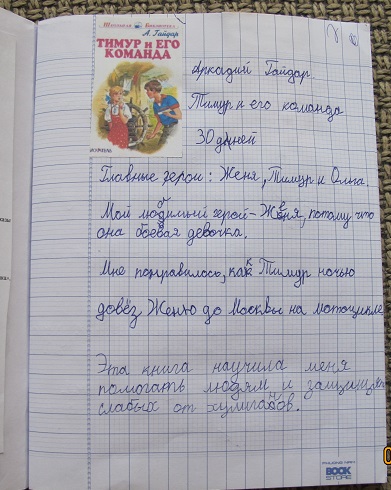 Школьная Библиотека
А. Гайдар
ТИМУР и ЕГО
КОМАНДА
Аркадий Гайдар
Тимур и его команда
30 дней
Главные герои: Женя, Тимур и Ольга.
Мой любимый герой - Женя, потому что
она боевая девочка.
Мне понравилось, как Тимур ночью
довёз Женю до Москвы на мотоцикле
Эта книга научила меня
помогать людям и защищать
слабых от хулиганов.
BOOK
STORE